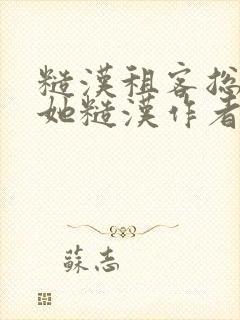 糙漢租客總
她糙漢作者
蘇志